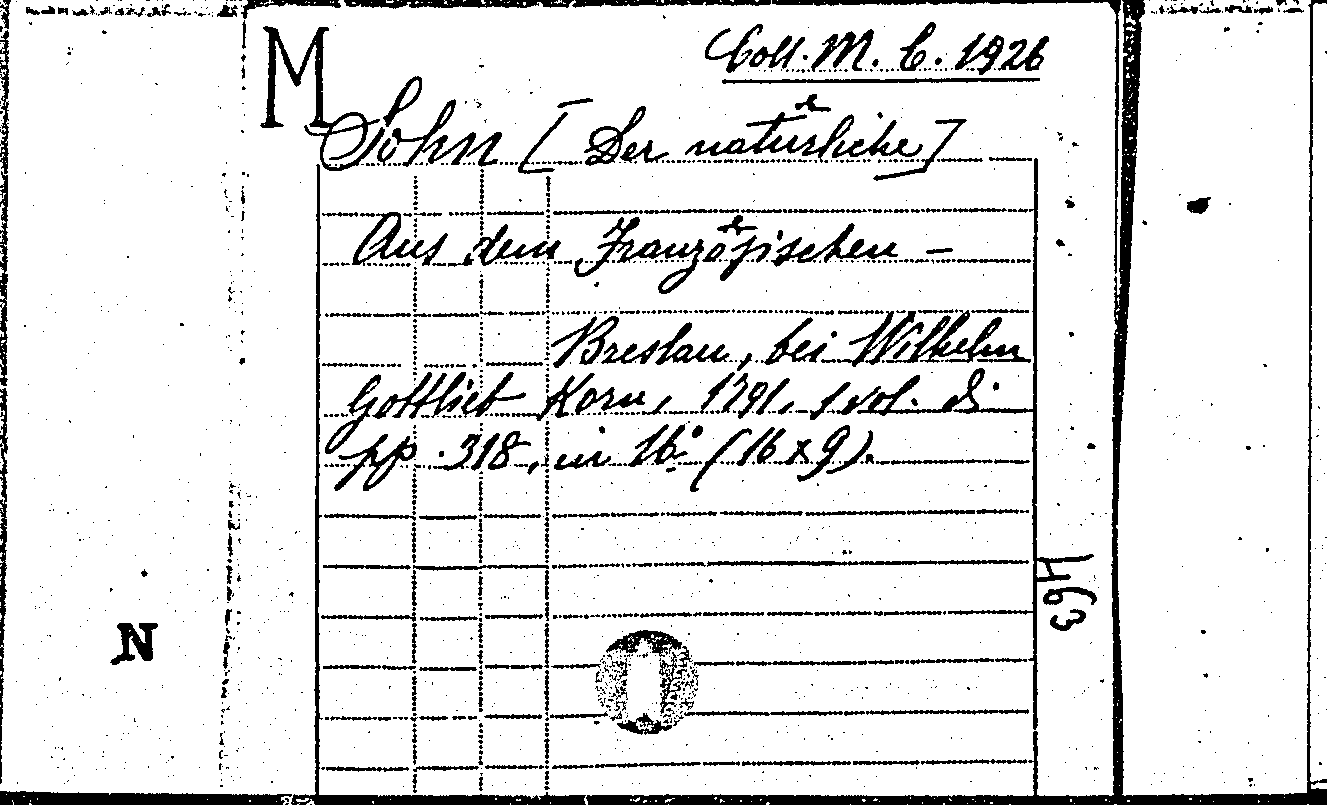 M
Coll. M. C. 1926
Sohn [Der natuͤrliche]
Aus dem Franzoͤsischen -
Breslau, bei Wilhelm
Gottlieb Korn, 1791, 1 vol. di
pp. 318, in 16.° (16 x 9).
463
N